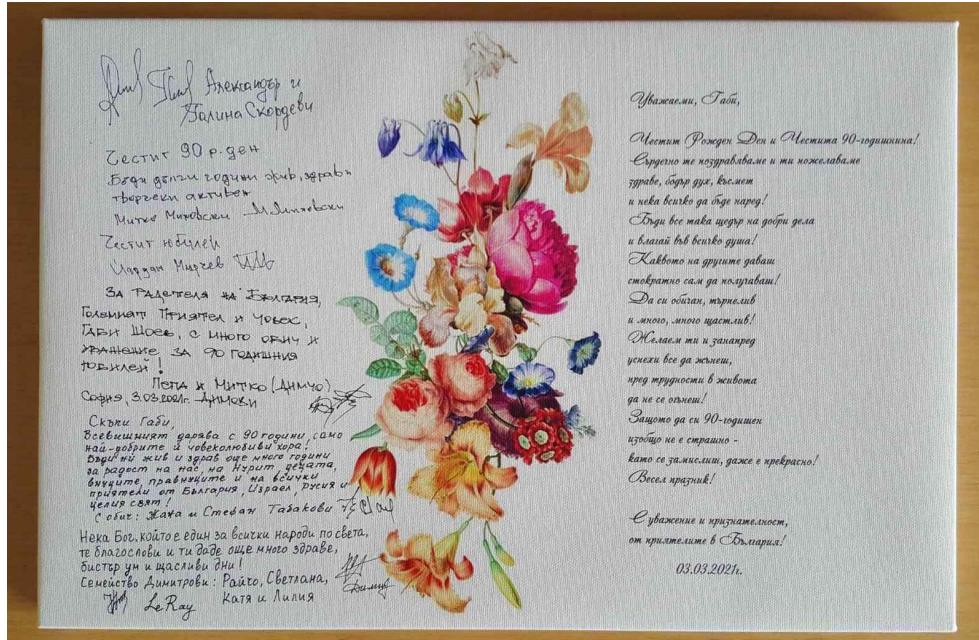 Александър и
Галина Скордеви
Честит 90 р. ден
Бъди дълги години жив, здрав и
творчески активен
Митко
Честит юбилей
За радетеля на България,
Големият Приятел и Човек,
Габи Шоев, с много обич и
уважение за 90 годишния
юбилей!
Пепа и Митко (Димчо)
София, 3.03.2021г. Димови
Скъпи Габи,
Всевишният дарява с 90 години само
най-добрите и човеколюбиви хора!
Бъди ни жив и здрав още много години
за радост на нас, на Нурит, децата,
внуците, правнуците и на всички
приятели от България, Израел, Русия и
целия свят!
С обич: Жана и Стефан Табакови
Нека Бог, който е един за всички народи по света,
те благослови и ти даде още много здраве,
бистър ум и щасливи дни!
Семейство Димитрови: Райчо, Светлана,
Катя и Лилия
LeRay
Уважаеми, Габи,
Честит Рожден Ден и Честита 90-годишнина!
Сърдечно те поздравяваме и ти пожелаваме
здраве, бодър дух, късмет
и нека всичко да бъде наред!
Бъди все така щедър на добри дела
и влагай във всичко душа!
Каквото на другите даваш
стократно сам да получаваш!
Да си обичан, търпелив
и много, много щастлив!
Желаем ти и занапред
успехи все да жънеш,
пред трудности в живота
да не се огънеш!
Защото да си 90-годишен
изобщо не е страшно -
като се замислиш, даже е прекрасно!
Весел празник!
С уважение и признателност,
от приятелите в България!
03.03.2021г.